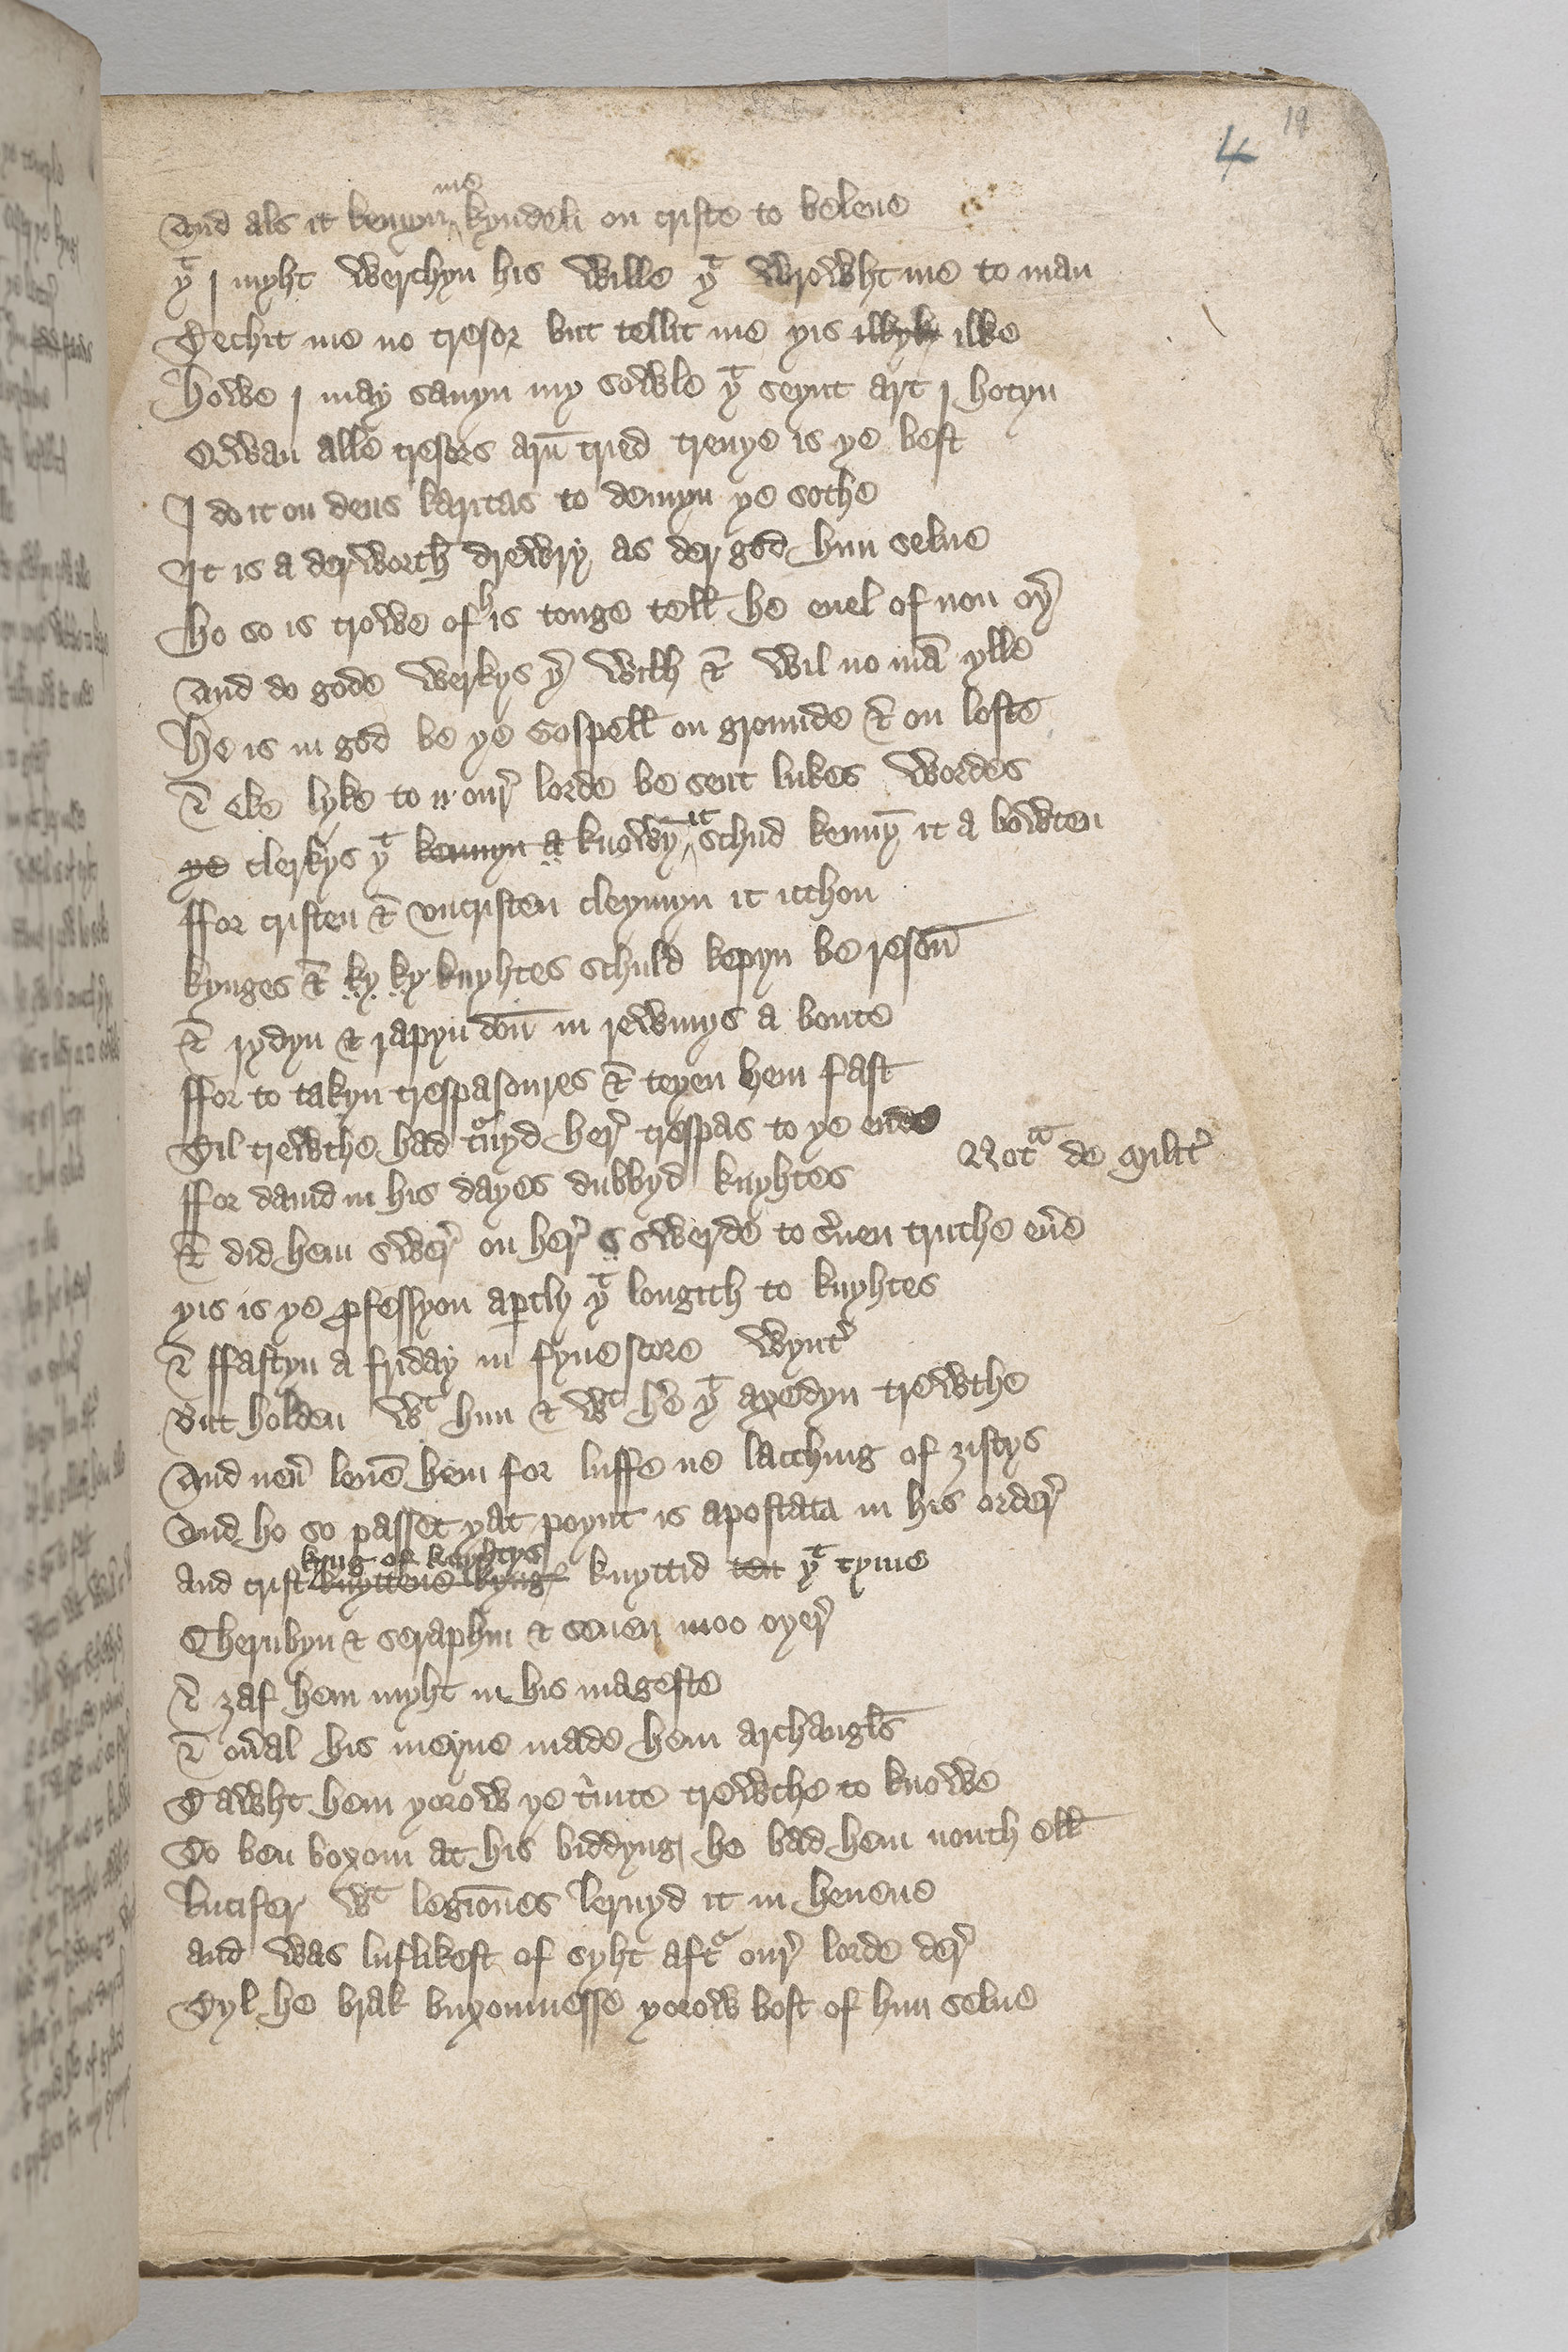 4 19
And als it kennyn me kyndeli on criste to beleue
yͭ I myht werchyn his wille yͭ wrowht me to man
Techit me no tresor but tellit me yis illkyk ilke
Howe I may sauyn my sowle yͭ seynt art I hotyn
Qwan alle tresors arn̄ tried treuye is ye best
I do it on deus karitas to demyn ye sothe
It is a derworth drewry as der god him selue
Ho so is trowe of his tonge tell he euel of non oyꝰ
And do gode werkys yꝰ with & wil no mā ylle
He is in god be ye gospell on grounde & on lofte
& eke lyke to our lorde be sent lukes wordes
ye clerkys yͭ kennyn a knowȳ it schud kennȳ it a bowten
ffor cristen & vncristen cleymyn it itchon
kynges & ky ky knyhtes schuld kepyn be reson̄
& rydyn & rapyn don̄ in rewmys a boute
ffor to takyn trespasoures & teyen hem fast
Til trewthe had tᵉmyd herꝰ trespas to ye ende
Notᵃ de militꝰ
ffor dauid in his dayes dubbyd knyhtes
& did hem swerꝰ on herꝰ s swerde to sꝰuen truthe euꝰe
yis is ye ꝓfessyon aꝑtly yͭ longith to knyhtes
& ffastyn a friday in fyue score wyntꝰ
But holden wͭ him & wͭ hꝰe yͭ axedyn trewthe
And neuꝰ leuē hem for luffe ne lacching of ziftys
And ho so passet yat poynt is apostata in his orderꝰ
And crist knyttene kyng king of knyhtys knyttid ten yͭ tyme
Cherubyn & seraphin & seuen moo oyerꝰ
& zaf hem myht in his mageste
& ouꝰal his meyne made hem archangl̄s
Tawht hem yorow ye tͥnite trewthe to knowe
To ben boxom at his biddyng he bad hem nouth ell
Lucifer wͭ legiōnes lernyd it in heuene
and was luflikest of syht aftꝰ ourꝰ lorde derꝰ
Tyl he brak buxomnesse yorow bost of him selue